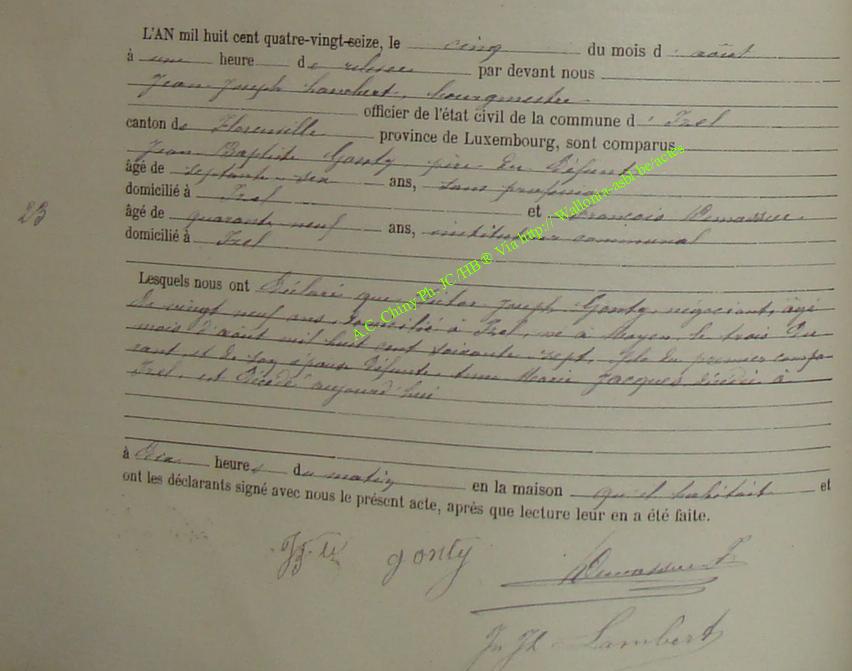 L'AN mil huit cent quatre-vingt-seize, le cinq du mois d'août
à une heure de relevée par devant nous
Jean Joseph Lambert, bourgmestre
officier de l'état civil de la commune d'Izel
canton de Florenville province de Luxembourg, sont comparus
Jean Baptiste Gonty père du défunt
âgé de septante-six ans, sans profession
domicilié à Izel et François Demasseur
âgé de quarante neuf ans, instituteur communal
domicilié à Izel
23
Lesquels nous ont déclaré que Victor Joseph Gonty, négociant, âgé
de vingt neuf ans, domicilié à Izel, né à Moyen, le trois du
mois d'août mil huit cent soixante-sept, fils du premier compa-
rant et de son épouse défunte Marie Jacques décédée à
Izel, est décédé aujourd'hui
à dix heures du matin en la maison qu'il habitait et
ont les déclarants signé avec nous le présent acte, après que lecture leur en a été faite.
gonty
J. Jh Lambert
A.C. Chiny Ph. JC/HB ® Via http:// Wallonia-asbl.be/actes